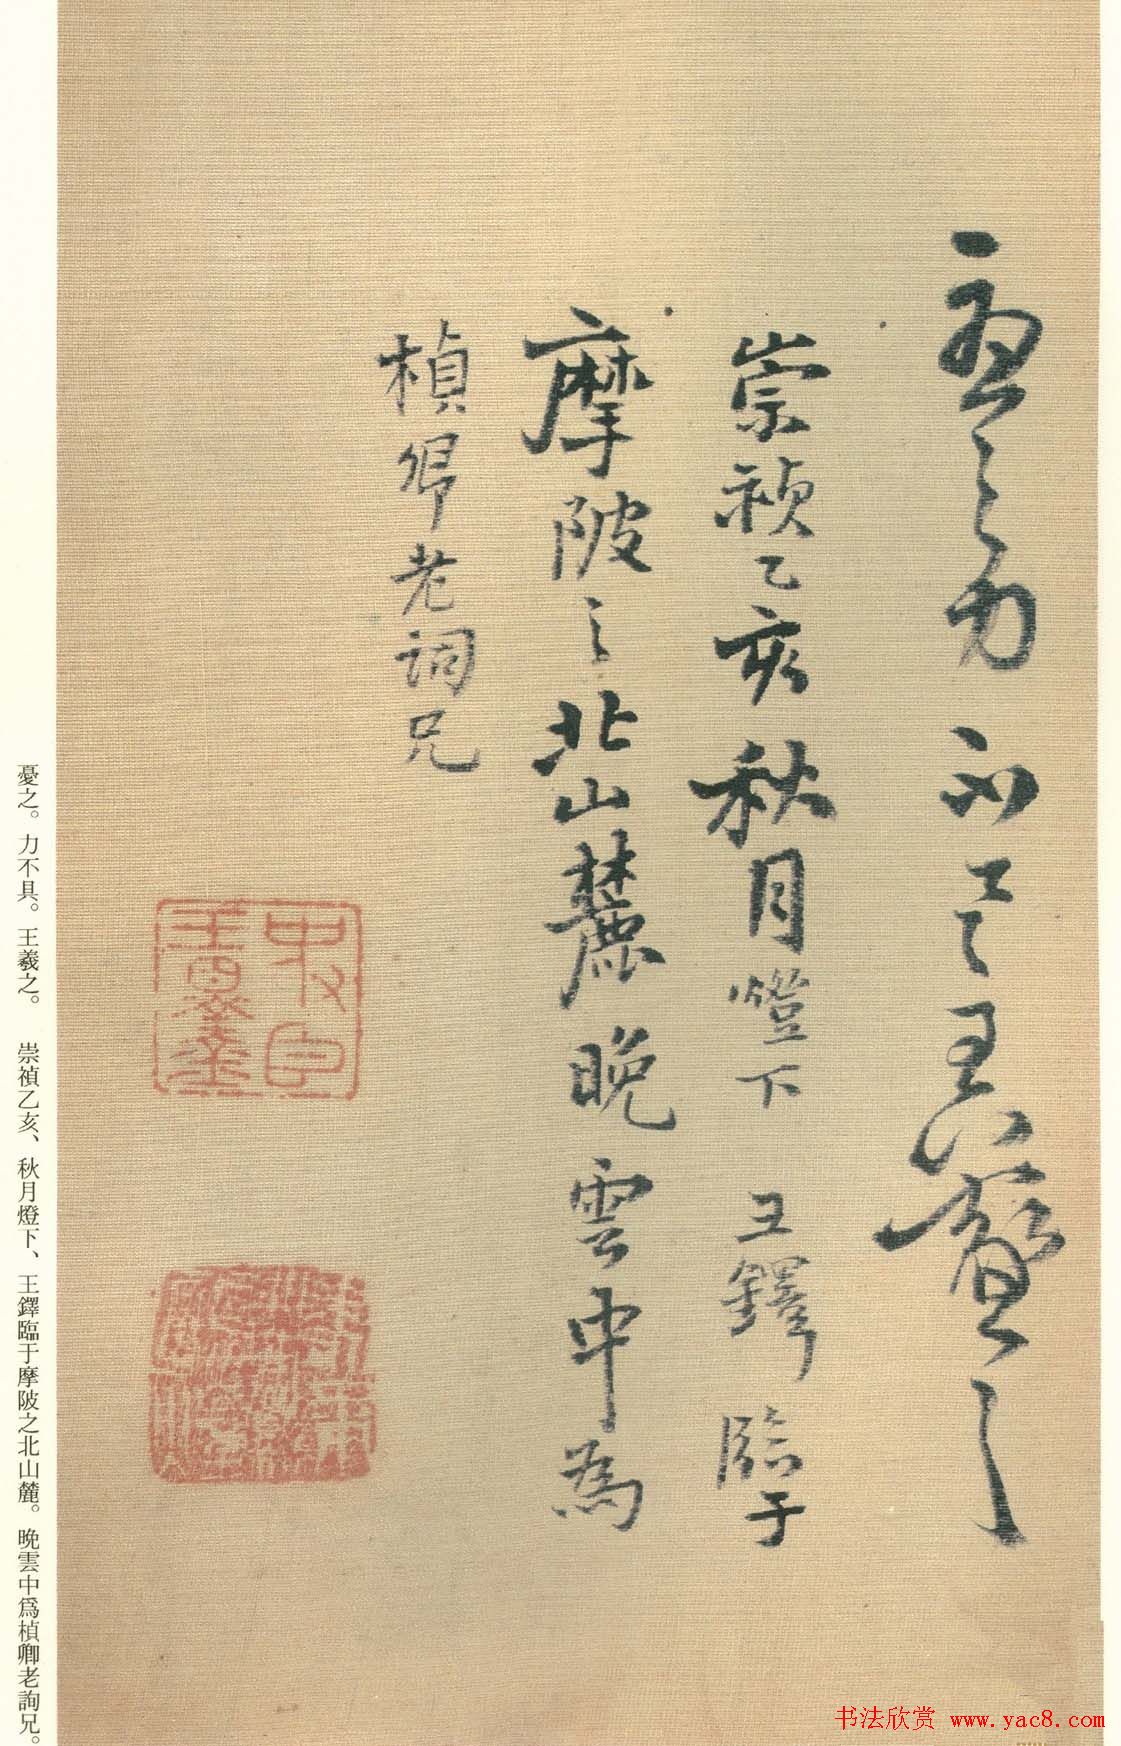 憂之力不具王羲之
崇禎乙亥秋月燈下王鐸臨于
摩陂之北山麓晚雲中為
楨卿老詞兄
憂之。力不具。王羲之。 崇禎乙亥、秋月燈下、王鐸臨于摩陂之北山麓。晚雲中爲楨卿老詢兄。
书法欣赏 www.yac8.com